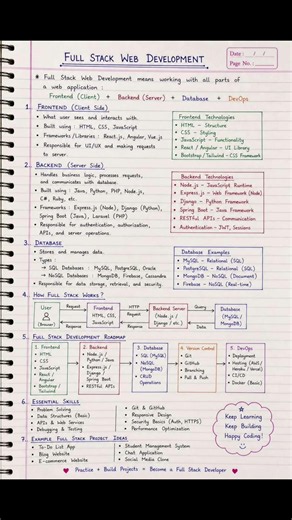 FULL STACK WEB DEVELOPMENT
Date : / /
Page No. :
* Full Stack Web Development means working with all parts of
a web application :
Frontend (Client) + Backend (Server) + Database + DevOps
1. FRONTEND (Client Side)
• What user sees and interacts with.
• Built using : HTML, CSS, JavaScript
• Frameworks/Libraries : React.js, Angular, Vue.js
• Responsible for UI/UX and making requests
to server.
Frontend Technologies
• HTML - Structure
• CSS - Styling
• JavaScript - Functionality
• React / Angular - UI Library
• Bootstrap / Tailwind - CSS Framework
2. BACKEND (Server Side)
• Handles business logic, processes requests,
and communicates with database.
• Built using : Java, Python, PHP, Node.js,
C#, Ruby, etc.
• Frameworks : Express.js (Node), Django (Python),
Spring Boot (Java), Laravel (PHP)
• Responsible for authentication, authorization,
APIs, and server operations.
Backend Technologies
• Node.js - JavaScript Runtime
• Express.js - Web Framework (Node)
• Django - Python Framework
• Spring Boot - Java Framework
• RESTful APIs - Communication
• Authentication - JWT, Sessions
3. DATABASE
• Stores and manages data.
• Types :
→ SQL Databases : MySQL, PostgreSQL, Oracle
→ NoSQL Databases : MongoDB, Firebase, Cassandra
• Responsible for data storage, retrieval, and security.
Database Examples
• MySQL - Relational (SQL)
• PostgreSQL - Relational (SQL)
• MongoDB - NoSQL (Document)
• Firebase - NoSQL (Real-time)
4. HOW FULL STACK WORKS ?
User
(Browser)
Request
Response
Frontend
(HTML, CSS,
JavaScript)
HTTP
Request
Response
Backend Server
(Node.js /
Django / etc.)
Query
Data
Database
(MySQL/
MongoDB)
5. FULL STACK DEVELOPMENT ROADMAP
1. Frontend
• HTML
• CSS
• JavaScript
• React /
Angular
• Bootstrap /
Tailwind
2. Backend
• Node.js /
Python/Java
• Express.js /
Django /
Spring Boot
• RESTful APIs
3. Database
• SQL (MySQL)
• NoSQL
(MongoDB)
• CRUD
Operations
4. Version Control
• Git
• GitHub
• Branching
• Pull & Push
5. DevOps
• Deployment
• Hosting (Netlify /
Heroku / Vercel)
• CI/CD
• Docker (Basic)
6. ESSENTIAL SKILLS
• Problem Solving
• Data Structures (Basic)
• APIs & Web Services
• Debugging & Testing
• Git & GitHub
• Responsive Design
• Security Basics (Auth, HTTPS)
• Performance Optimization
Keep Learning
Keep Building
Happy Coding !
7. EXAMPLE FULL STACK PROJECT IDEAS
• To-Do List App
• Blog Website
• E-commerce Website
• Student Management System
• Chat Application
• Social Media Clone
Practice + Build Projects = Become a Full Stack Developer